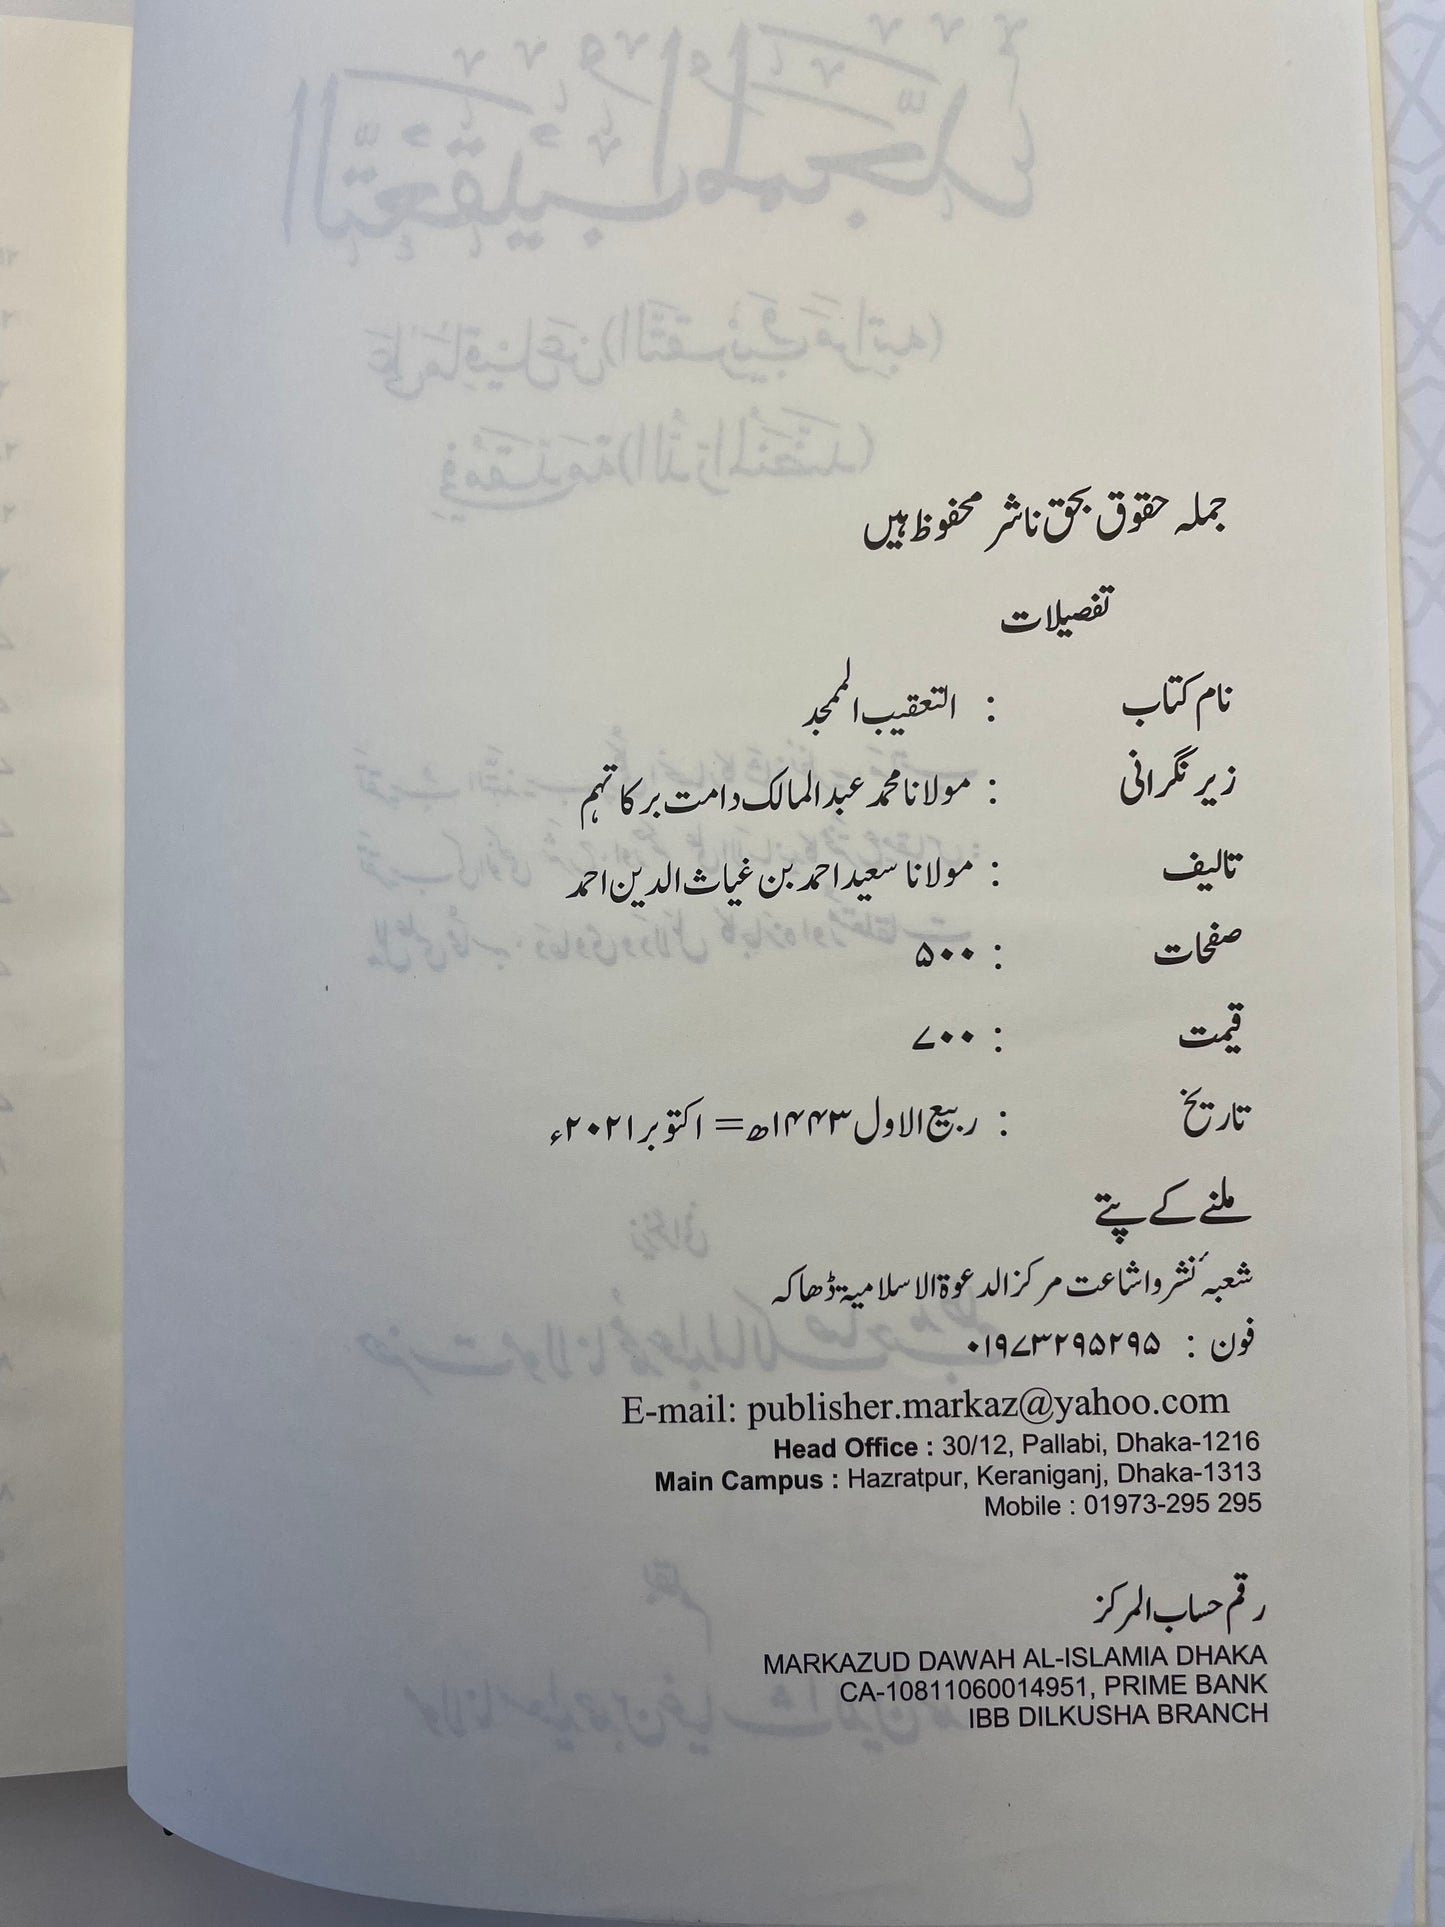 جملہ حقوق بحق ناشر محفوظ ہیں
تفصیلات
نام کتاب : التعقیب الممجد
زیر نگرانی : مولانا محمد عبد المالک دامت برکاتہم
تالیف : مولانا سعید احمد بن غیاث الدین احمد
صفحات : ۵۰۰
قیمت : ۷۰۰
تاریخ : ربیع الاول ۱۴۴۳ھ = اکتوبر ۲۰۲۱ء
ملنے کے پتے
شعبۂ نشر و اشاعت مرکز الدعوۃ الاسلامیۃ ڈھاکہ
فون : ۰۱۹۷۳۲۹۵۲۹۵
E-mail: publisher.markaz@yahoo.com
Head Office : 30/12, Pallabi, Dhaka-1216
Main Campus : Hazratpur, Keraniganj, Dhaka-1313
Mobile : 01973-295 295
رقم حساب المرکز
MARKAZUD DAWAH AL-ISLAMIA DHAKA
CA-10811060014951, PRIME BANK
IBB DILKUSHA BRANCH